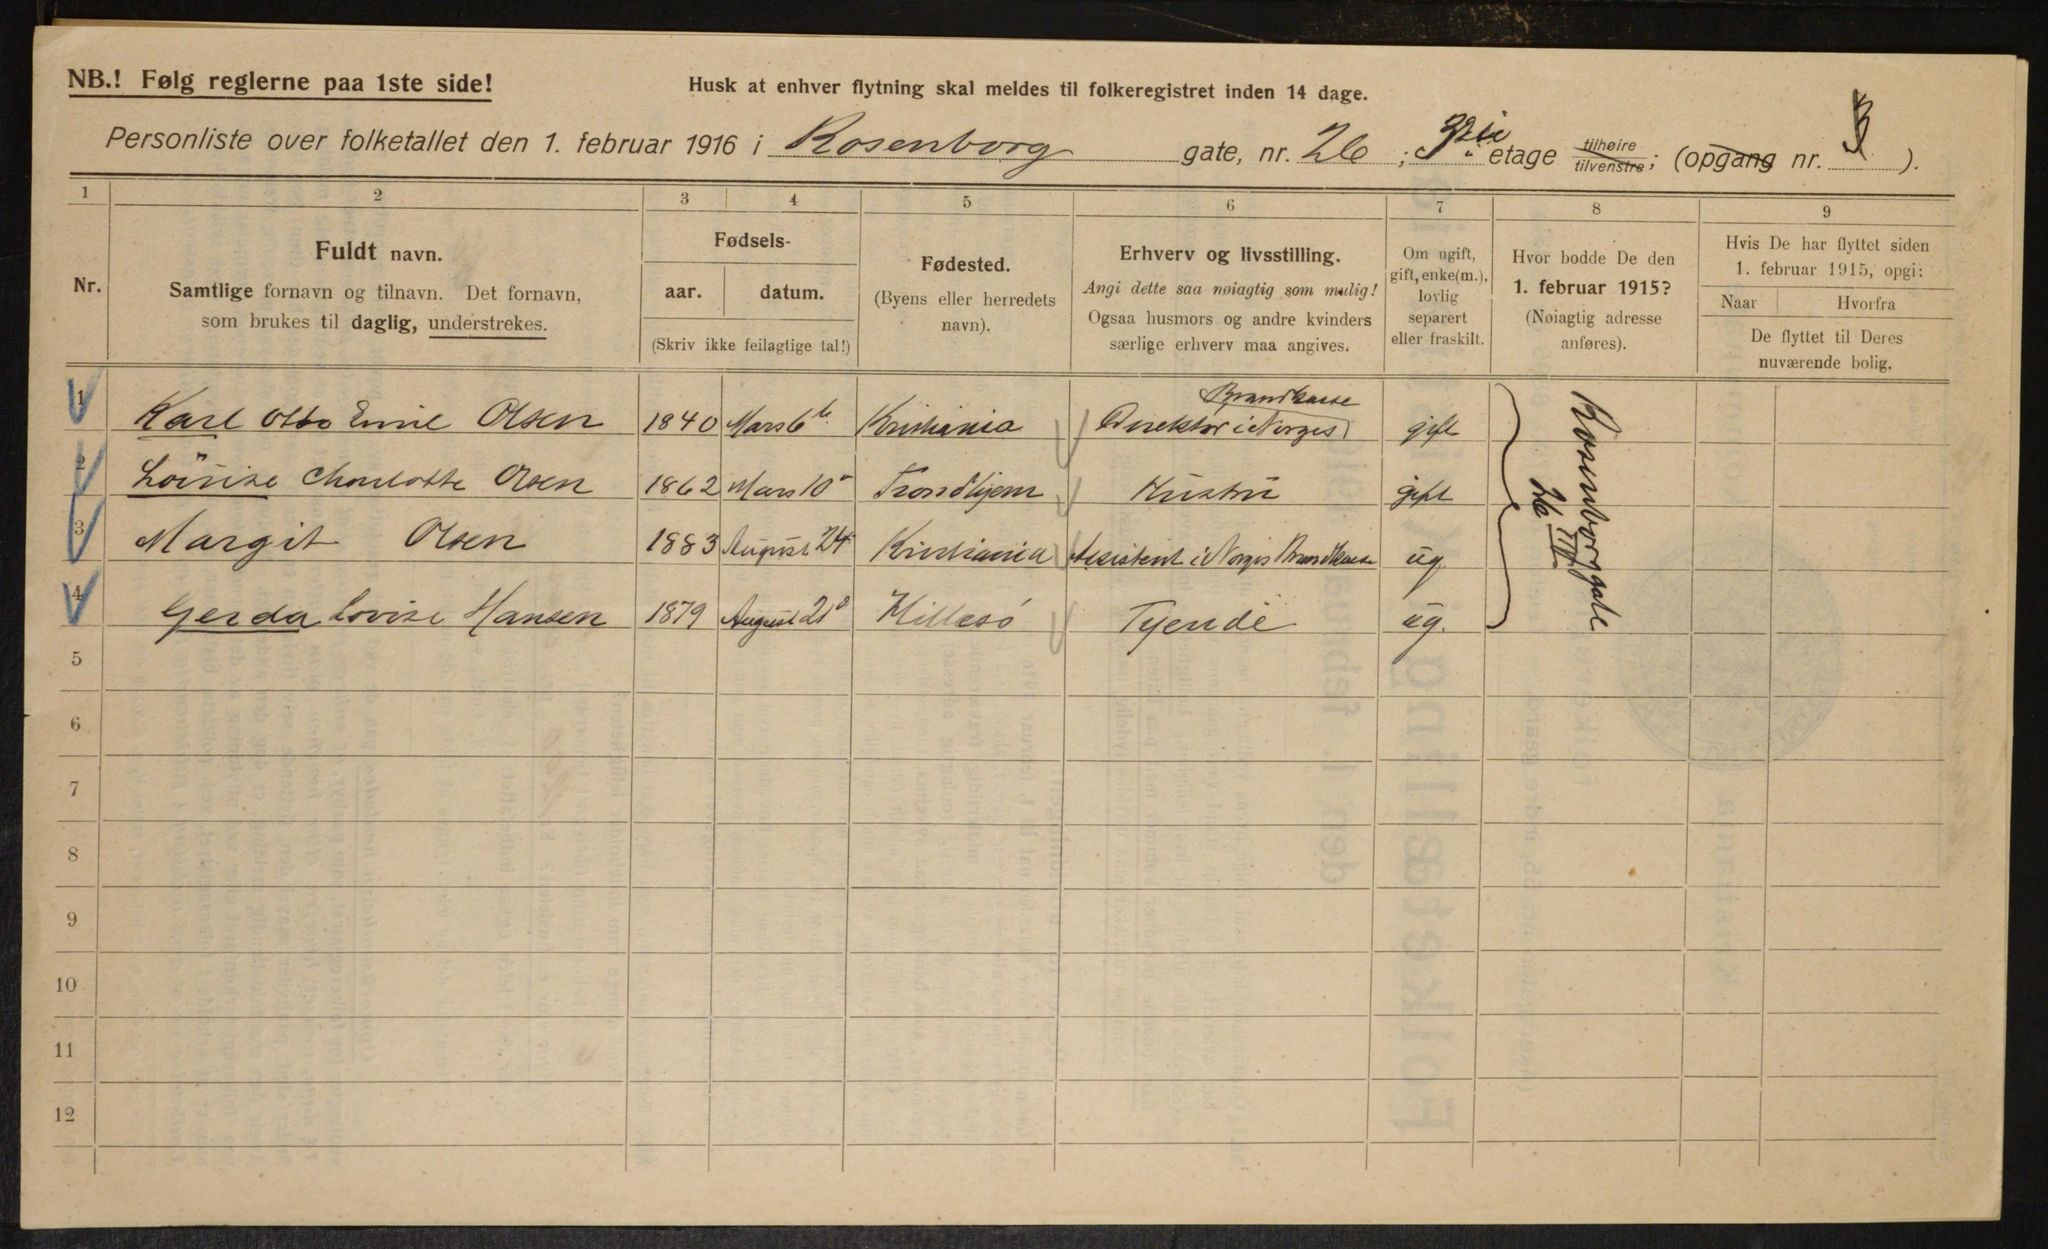 NB.! Følg reglerne paa 1ste side!
Husk at enhver flytning skal meldes til folkeregistret inden 14 dage.
Personliste over folketallet den 1. februar 1916 i Rosenborg gate, nr. 26; 3die etage tilhøire tilvenstre; (opgang nr. ).
1 2 3 4 5 6 7 8 9
Nr.
Fuldt navn.
Samtlige fornavn og tilnavn. Det fornavn,
som brukes til daglig, understrekes.
Fødsels-
aar. datum.
(Skriv ikke feilagtige tal!)
Fødested.
(Byens eller herredets
navn).
Erhverv og livsstilling.
Angi dette saa nøiagtig som mulig!
Ogsaa husmors og andre kvinders
særlige erhverv maa angives.
Om ugift,
gift, enke(m.),
lovlig
separert
eller fraskilt.
Hvor bodde De den
1. februar 1915?
(Nøiagtig adresse
anføres).
Hvis De har flyttet siden
1. februar 1915, opgi:
Naar Hvorfra
De flyttet til Deres
nuværende bolig.
Brandkasse
1 Karl Otto Emil Olsen 1840 Mars 6 Kristiania Direktør i Norges gift
2 Lovise Charlotte Olsen 1862 Mars 10 Trondhjem Hustru gift
3 Margit Olsen 1883 August 24 Kristiania Assistent i Norges Brandkasse ug.
4 Gerda Lovise Hansen 1879 August 21 Hillesö Tjende ug.
Rosenborggate
26 III
5
6
7
8
9
10
11
12